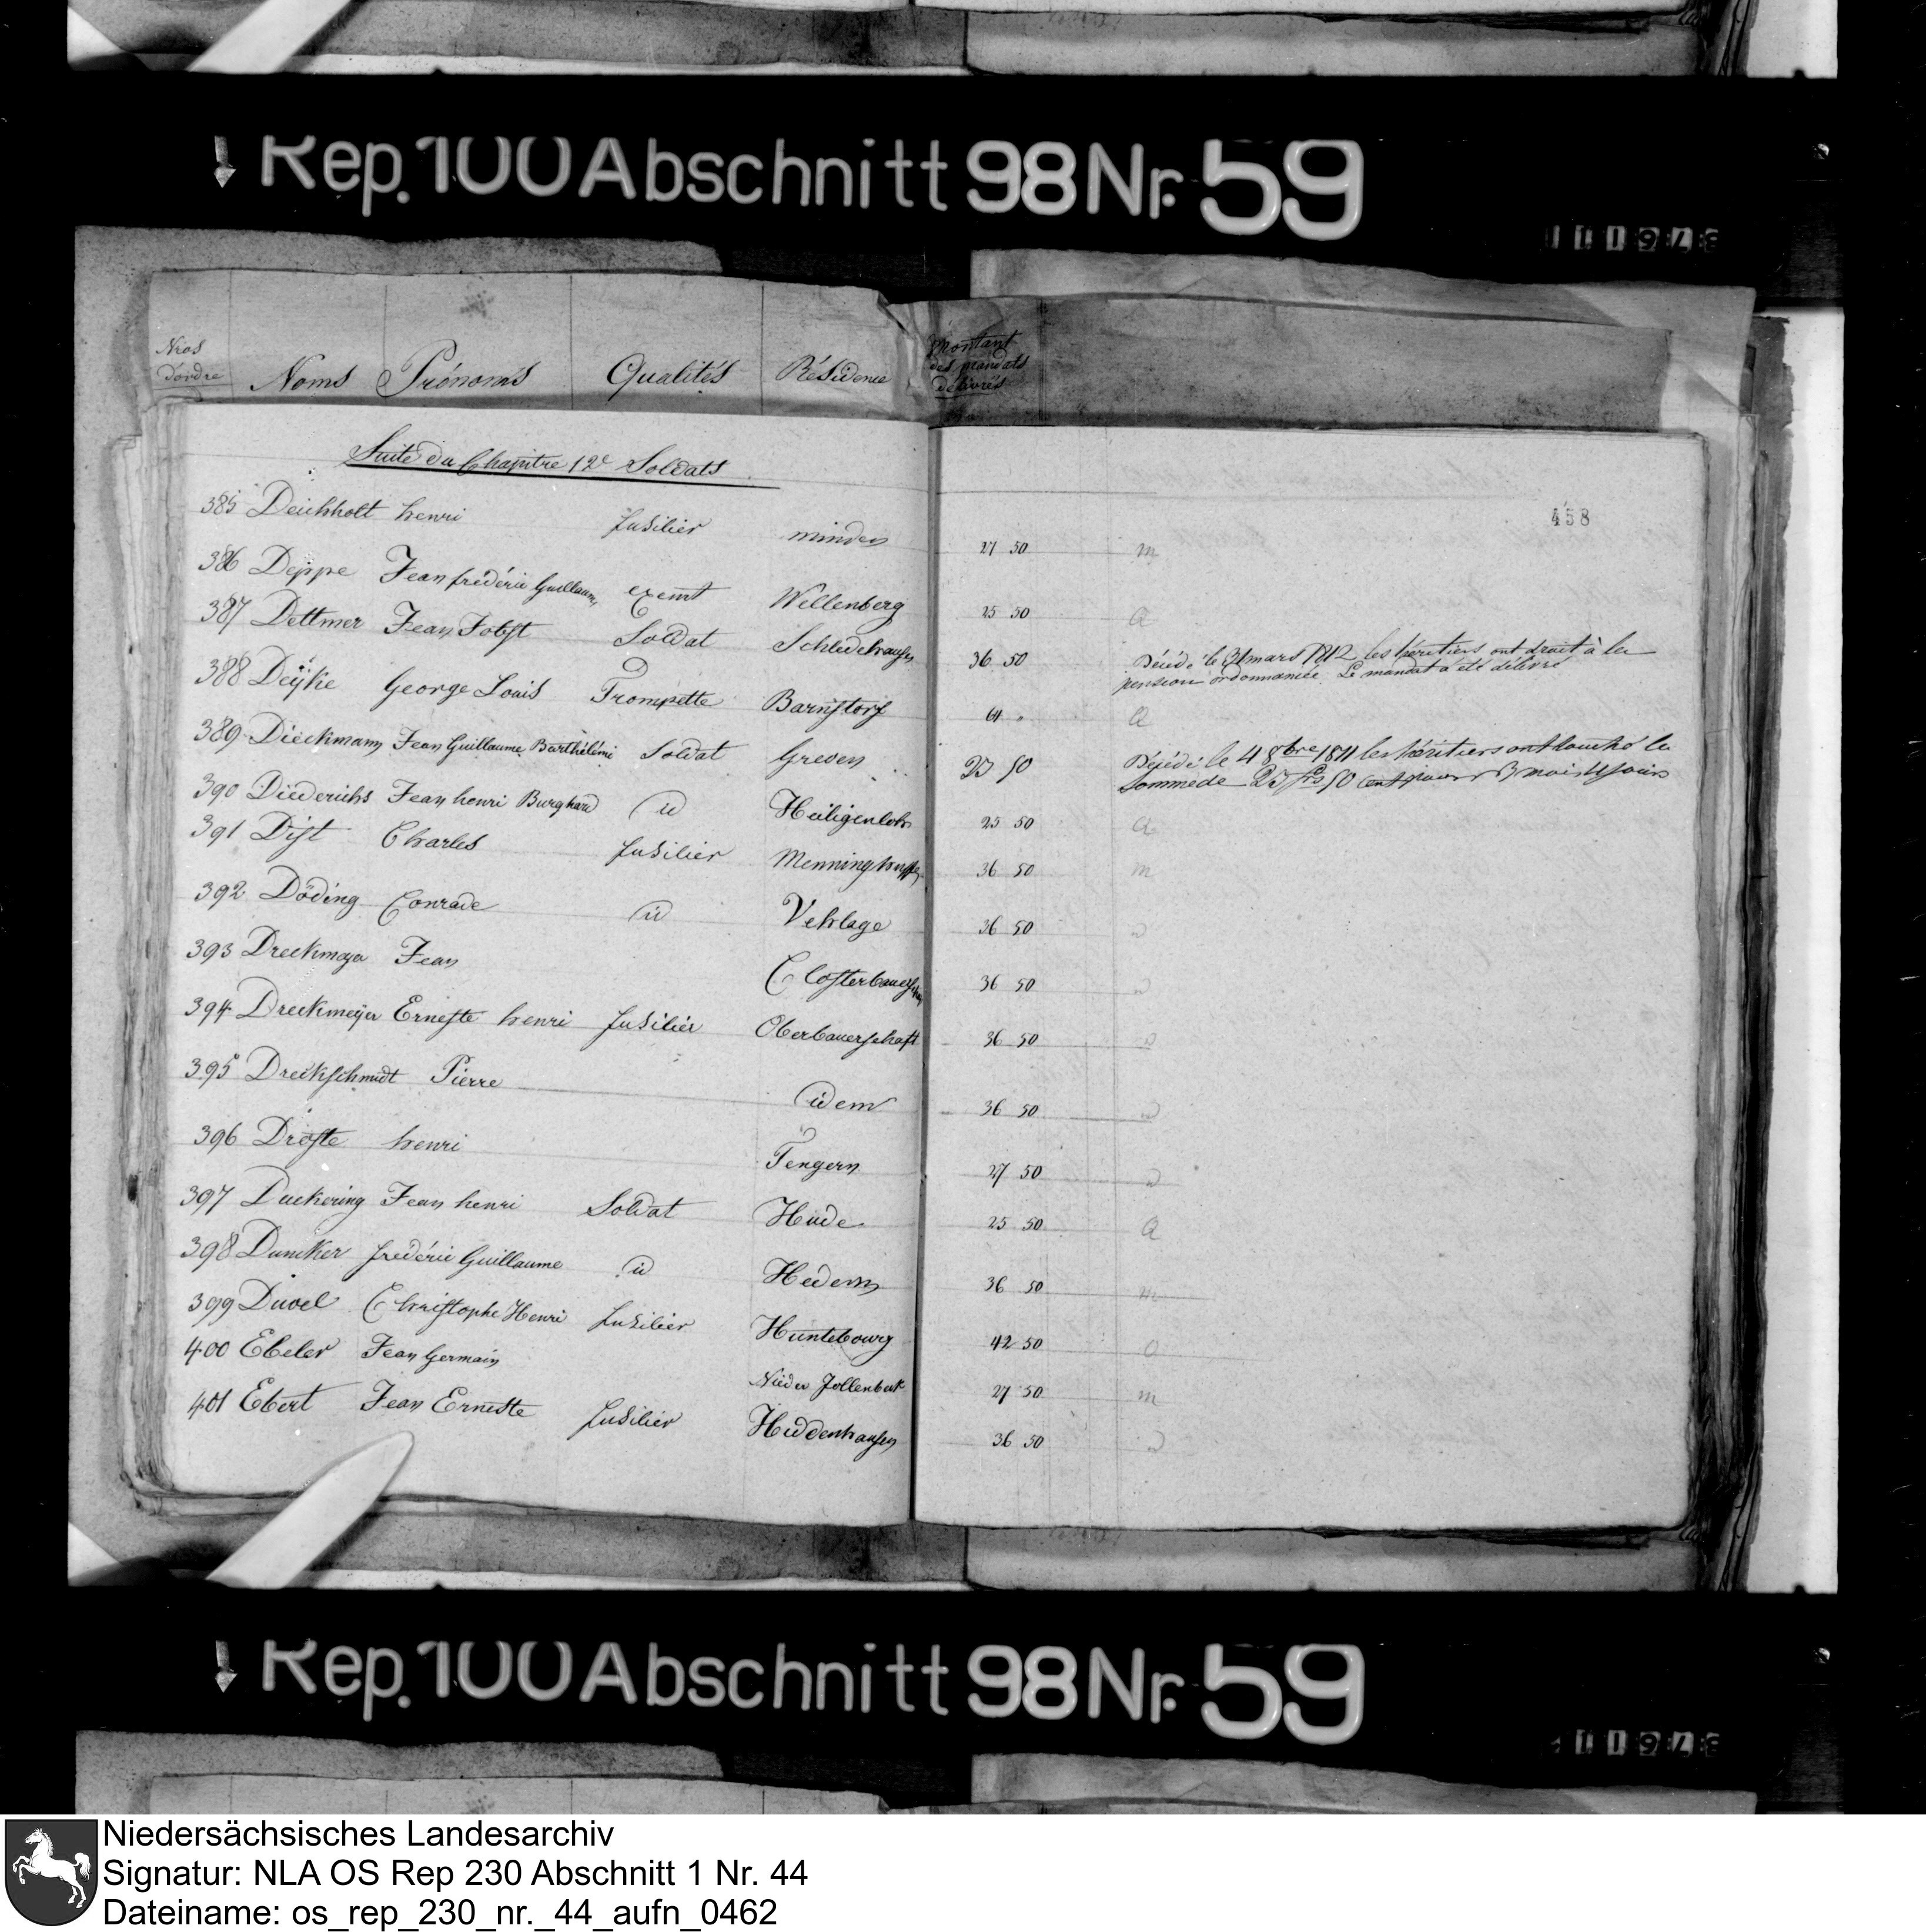 Rep. 100 Abschnitt 98 Nr. 59
Nros d'ordre Noms Prénoms Qualités Résidence Montant des mandats délivrés
Suite du Chapitre 12e Soldats
458
385 Deichholt henri fusilier minden 27 50 m
386 Deppe Jean frédéric Guillaume exemt Wellenberg 25 50 a
387 Dettmer Jean Jobst Soldat Schledehausen 36 50 Décédé le 31 mars 1812 les héritiers ont droit à la
pension ordonnancée Le mandat a été délivré
388 Deÿke George Louis Trompette Barnstorf 64 " a
389 Dieckmann Jean Guillaume Barthélémi Soldat Greven 23 50 Décédé le 4 8bre 1811 les héritiers ont touché la
somme de 23 frs 50 cent pour 3 mois 4 jours
390 Diederichs Jean henri Burghard id Heiligenloh 25 50 a
391 Dist Charles fusilier Menninghuffen 36 50 m
392 Döding Conrade id Vehlage 36 50 "
393 Dreckmeyer Jean Closterbauerschaft 36 50 "
394 Dreckmeÿer Erneste henri fusilier Oberbauerschaft 36 50 "
395 Dreckschmidt Pierre idem 36 50 "
396 Droste henri Tengern 27 50 "
397 Duckering Jean henri Soldat Hüde 25 50 a
398 Duncker frédéric Guillaume id Hedem 36 50 m
399 Duvel Christophe Henri fusilier Huntebourg 42 50 O
400 Ebeler Jean Germain Nieder Jollenbeck 27 50 m
401 Ebert Jean Erneste fusilier Hiddenhausen 36 50 "
Rep. 100 Abschnitt 98 Nr. 59
Niedersächsisches Landesarchiv
Signatur: NLA OS Rep 230 Abschnitt 1 Nr. 44
Dateiname: os_rep_230_nr._44_aufn_0462